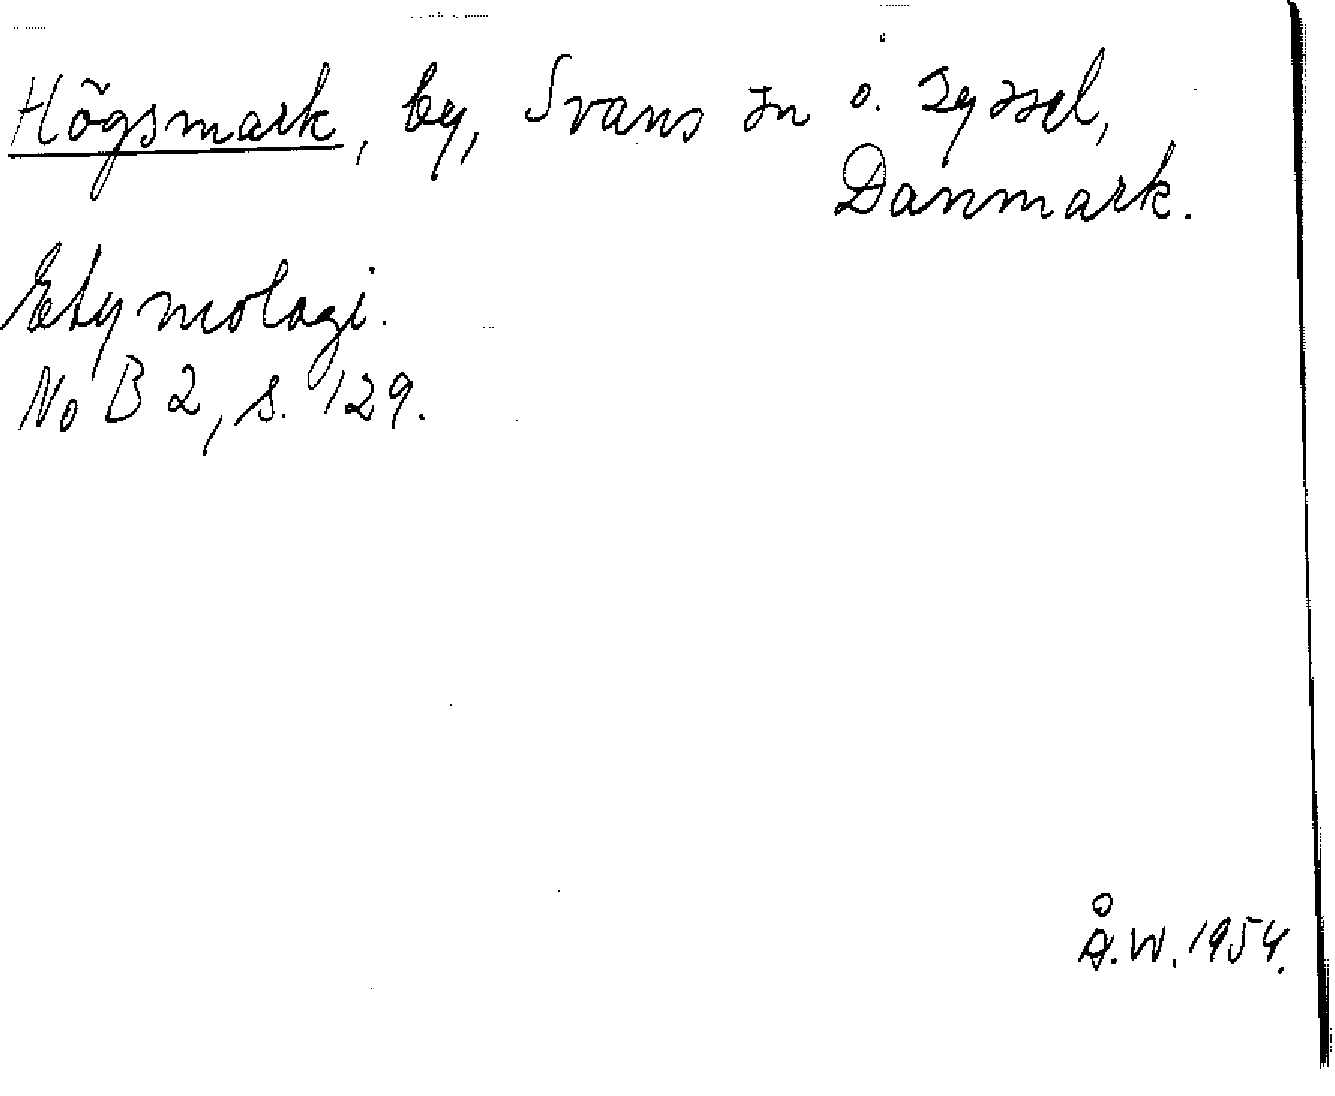 Högsmark, by, Svans sn o. syssel,
Danmark.
Etymologi.
NoB 2, s. 129.
Å.W. 1954.